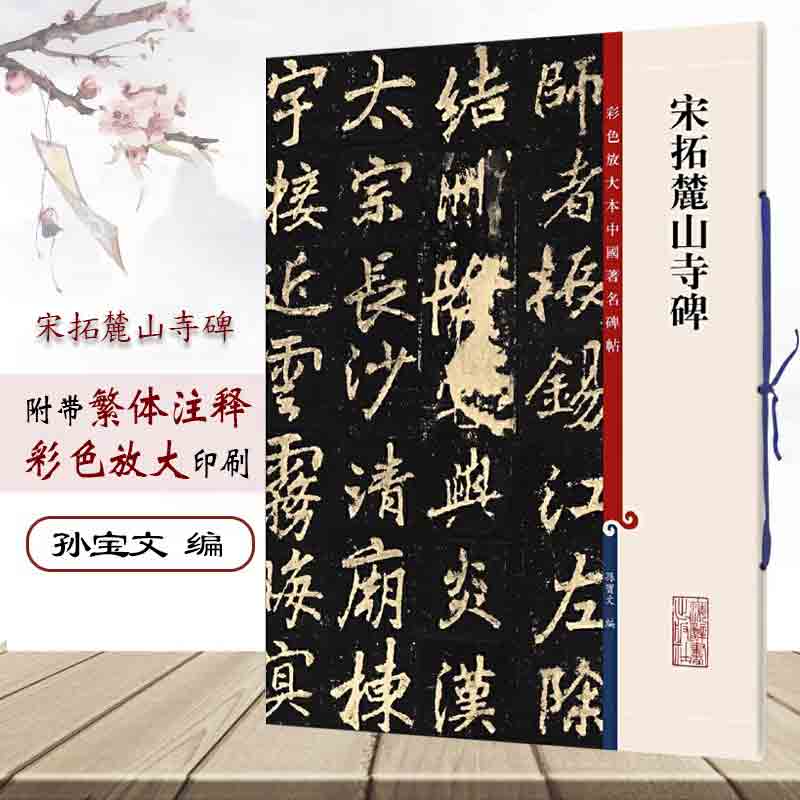 宋拓麓山寺碑
附带繁体注释
彩色放大印刷
孙宝文 编
宋拓麓山寺碑
彩色放大本中國著名碑帖
孫寶文 編
師者振錫江左除
結興炎漢
太宗長沙清廟棟
宇接近雲霧晦冥